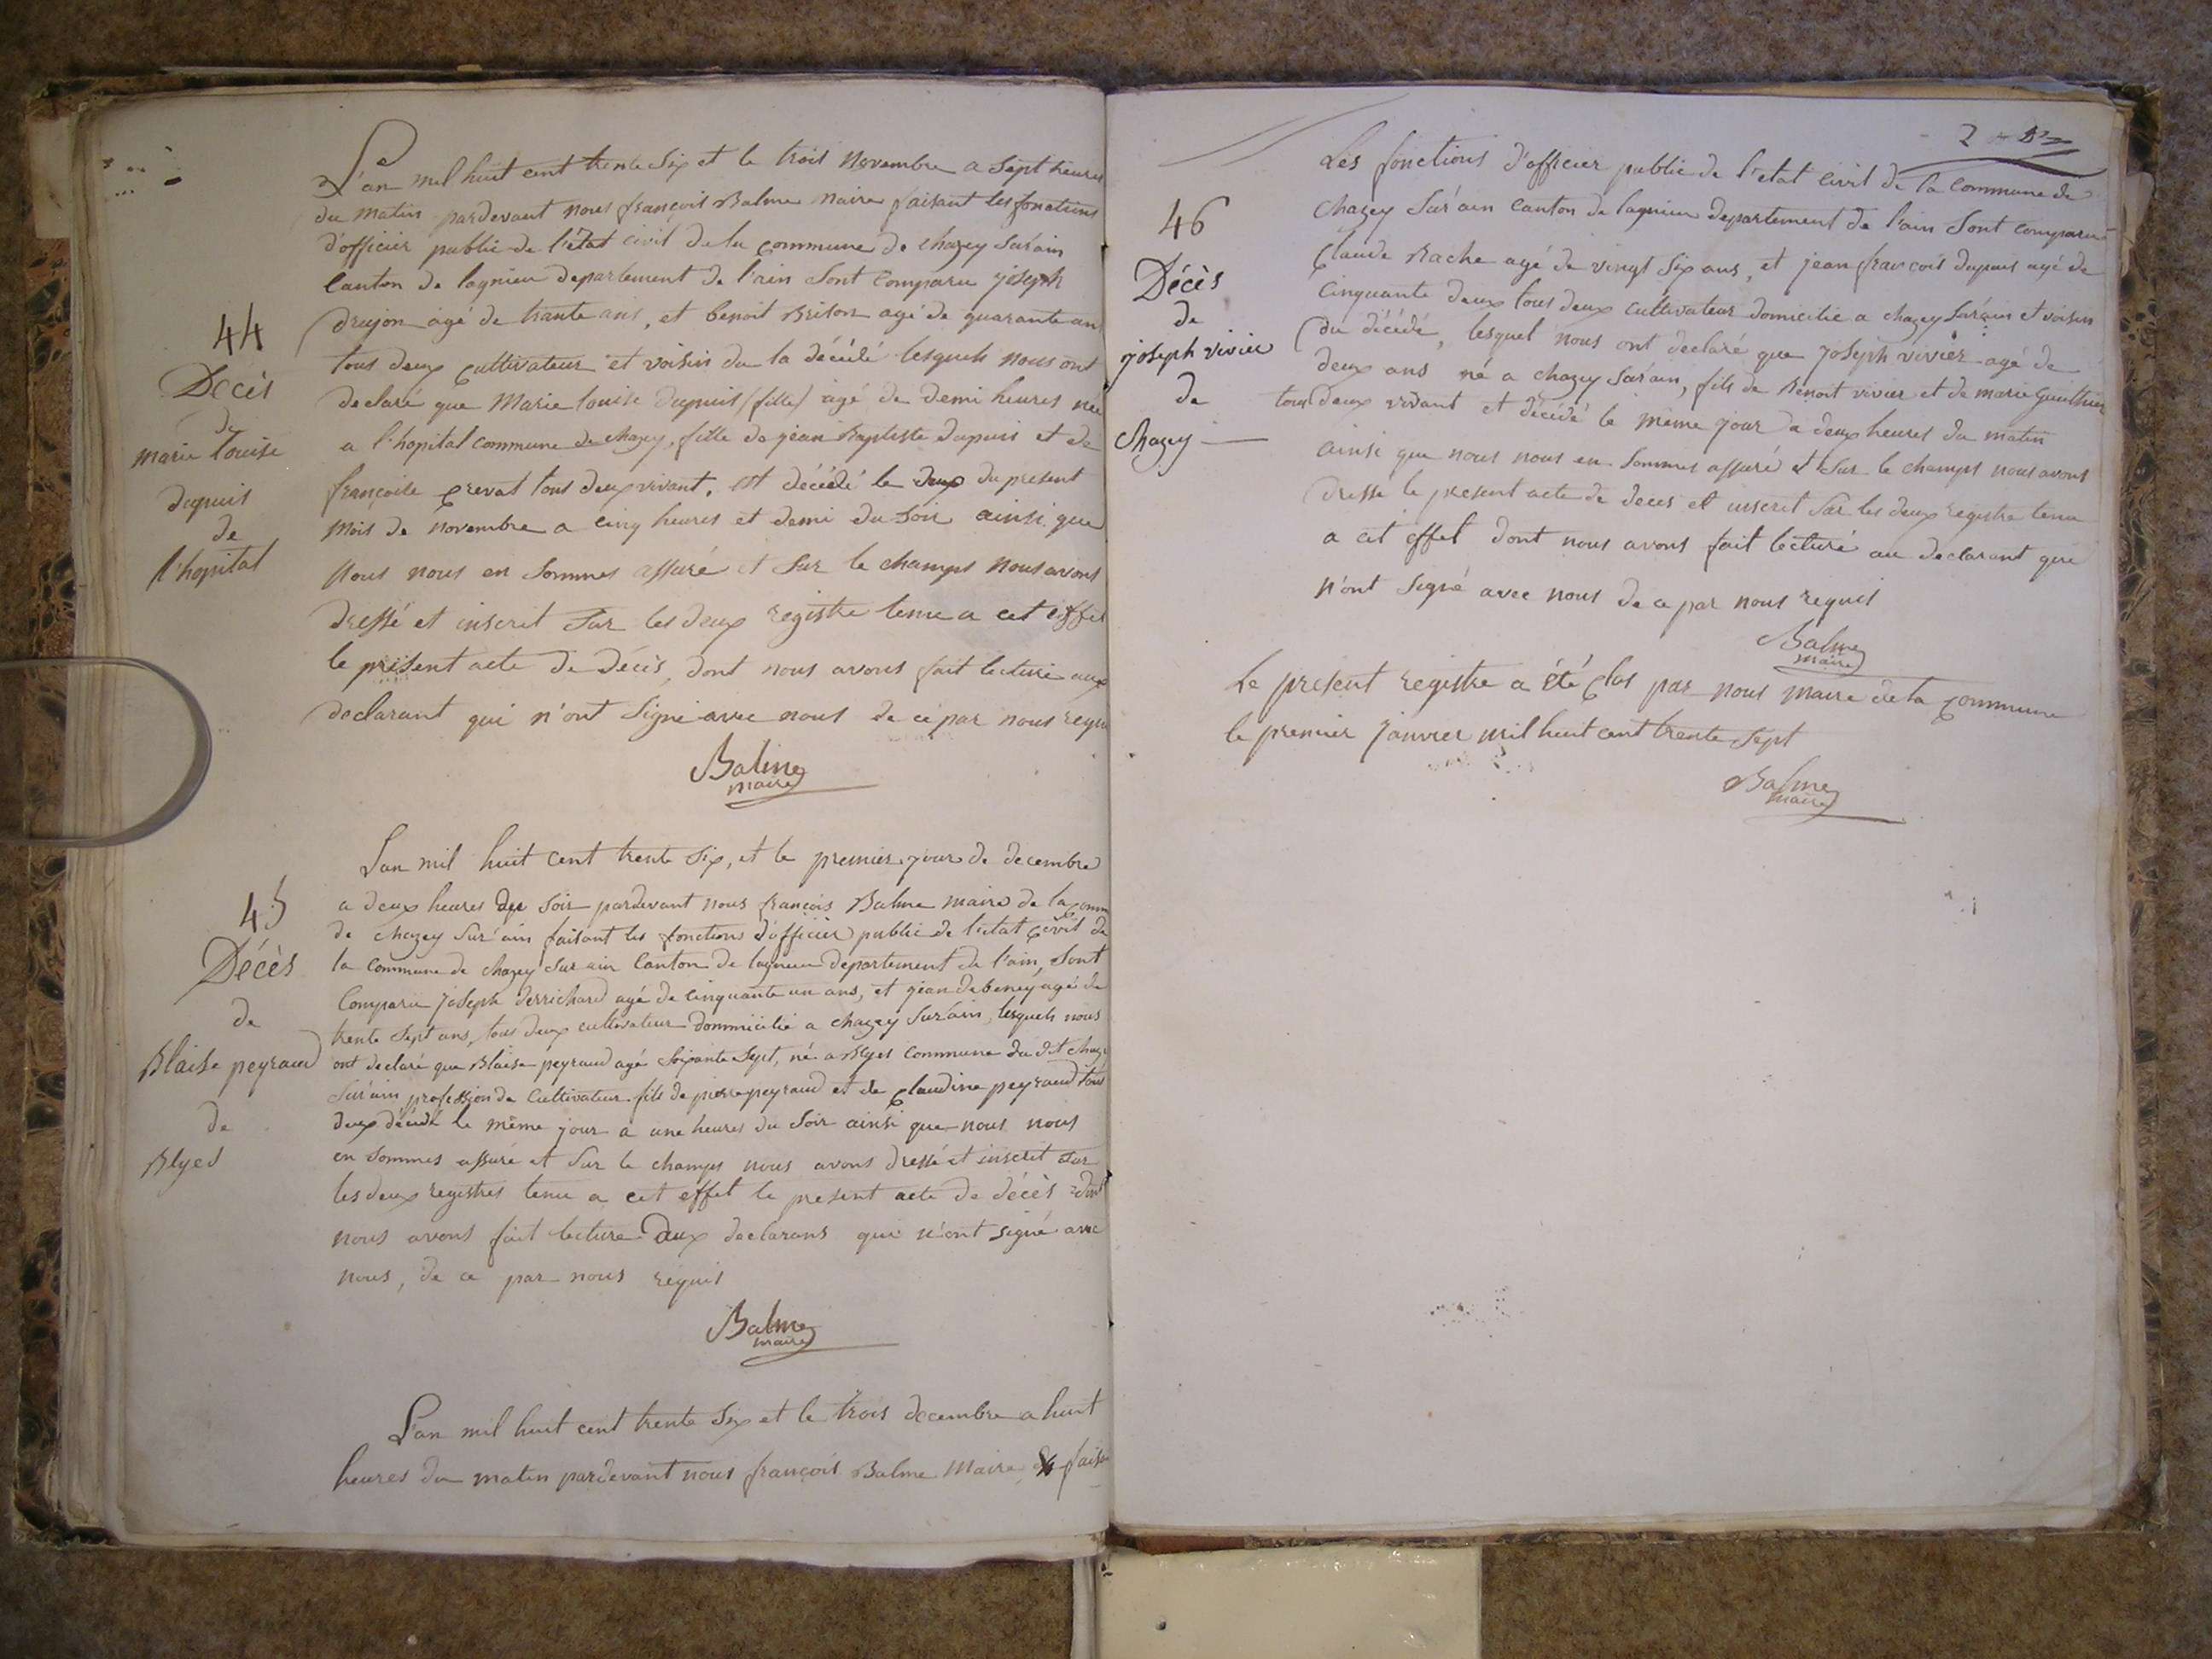 L'an mil huit cent trente Six et le trois Novembre a Sept heures
du matin pardevant nous françois Balme Maire faisant les fonctions
d'officier public de l'état civil de la commune de chazey Sur'ain
Canton de lagnieu departement de l'ain Sont Comparu joseph
drujon agé de trante ans, et benoit Brison agé de quarante an
44
tous deux Cultivateur et voisin du la décédé lesquels nous ont
Decès
declaré que Marie louise dupuis (fille) agé de demi heures née
de
a l'hopital commune de chazey, fille de jean Baptiste dupuis et de
marie louise
françoise Crevat tous deux vivant. est décédé le deux du present
dupuis
mois de novembre a cinq heures et demi du Soir ainsi que
de
l'hopital
Nous nous en Sommes assuré et Sur le champs Nous avons
dressé et inscrit Sur les deux registre tenu a cet effet
le présent acte de décès, dont nous avons fait lecture aux
declarant qui n'ont Signé avec nous de ce par nous requi
Balme
maire
L'an mil huit cent trente Six, et le premier jour de decembre
45
a deux heures du Soir pardevant nous françois Balme maire de la comm
de chazey Sur'ain faisant les fonctions d'officier public de l'état civil de
Décès
la commune de chazey Sur ain Canton de lagnieu departement de l'ain, Sont
Comparu joseph derrichard agé de Cinquante un ans, et jean debeney agé de
de
trente Sept ans, tous deux cultivateur dommicilié a chazey Sur'ain, lesquels nous
Blaise peyraud
ont declaré que Blaise peyraud agé Soixante Sept, né a Blyes commune du dit chaz
Sur'ain profession de Cultivateur fils de pierre peyraud et de Claudine peyraud tous
de
deux décédé le même jour a une heures du Soir ainsi que nous nous
Blyes
en Sommes assuré et Sur le champs nous avons dressé et inscrit Sur
les deux registres tenu a cet effet le present acte de décès dont
nous avons fait lecture aux declarans qui n'ont signé avec
nous, de ce par nous requis
Balme
maire
L'an mil huit cent trente Six et le trois decembre a huit
heures du matin pardevant nous françois Balme Maire faisa
Les fonctions d'officier public de l'etat civil de la Commune de
46
chazey Sur'ain Canton de lagnieu departement de l'ain Sont Comparu
Décès
Claude Rache agé de vingt Six ans, et jean françois dupuis agé de
de
Cinquante deux tous deux Cultivateur domicilié a chazey Sur'ain et voisin
joseph vivier
du décédé, lesquel nous ont declaré que joseph vivier agé de
de
deux ans né a chazey Sur'ain, fils de Benoit vivier et de marie Guillier
chazey
tous deux vivant et décédé le même jour a deux heures du matin
ainsi que nous nous en Sommes assuré et Sur le champs nous avons
dressé le present acte de deces et inscrit Sur les deux registre tenu
a cet effet dont nous avons fait lecture au declarant qui
n'ont Signé avec nous de ce par nous requis
Balme
maire
Le present registre a été clos par nous maire de la Commune
le premier Janvier mil huit cent trente Sept
Balme
maire